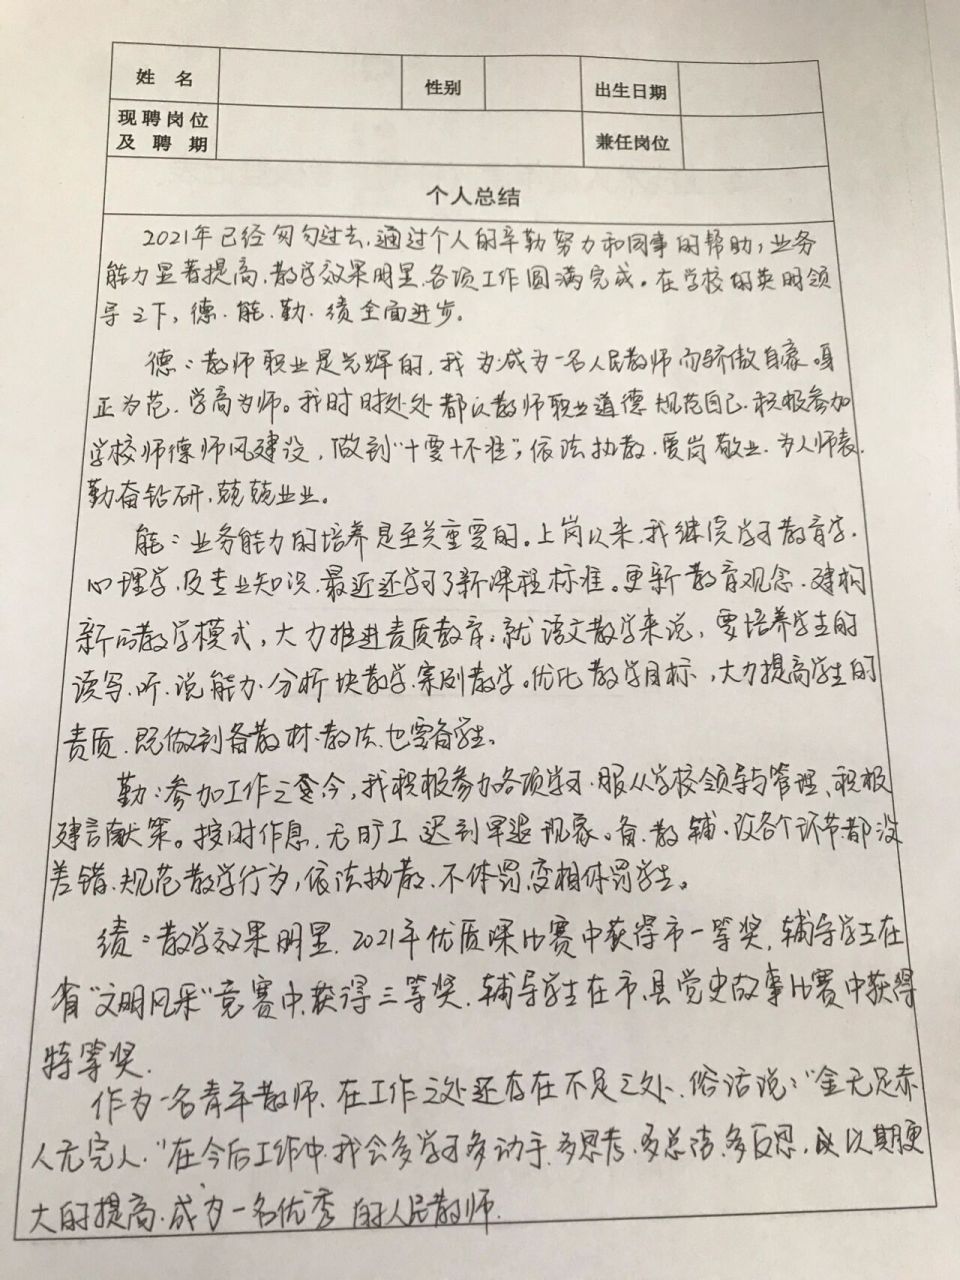 姓 名
性别
出生日期
现聘岗位
及 聘 期
兼任岗位
个人总结
2021年已经匆匆过去,通过个人的辛勤努力和同事的帮助,业务
能力显著提高,教学效果明显,各项工作圆满完成。在学校的英明领
导之下,德、能、勤、绩全面进步。
德:教师职业是光辉的,我为成为一名人民教师而骄傲自豪。
正为范,学高为师。我时时处处都以教师职业道德规范自己,积极参加
学校师德师风建设,做到“十要十不准”,依法执教,爱岗敬业,为人师表,
勤奋钻研,兢兢业业。
能:业务能力的培养是至关重要的。上岗以来,我继续学习教育学、
心理学及专业知识,最近还学习了新课程标准。更新教育观念,建构
新的教学模式,大力推进素质教育。就语文教学来说,要培养学生的
读、写、听、说能力,分析块教学,案例教学。优化教学目标,大力提高学生的
素质,既做到备教材、教法,也要备学生。
勤:参加工作之今,我积极参加各项学习,服从学校领导与管理,积极
建言献策。按时作息,无旷工迟到早退现象。备、教、辅、改各个环节都没
差错,规范教学行为,依法执教,不体罚、变相体罚学生。
绩:教学效果明显,2021年优质课比赛中获得市一等奖,辅导学生在
省“文明风采”竞赛中获得三等奖,辅导学生在市、县党史故事比赛中获得
特等奖.
作为一名青年教师,在工作之处还存在不足之处,俗话说:“金无足赤
人无完人.”在今后工作中,我会多学习多动手,多思考,多总结,多反思,以期更
大的提高,成为一名优秀的人民教师.